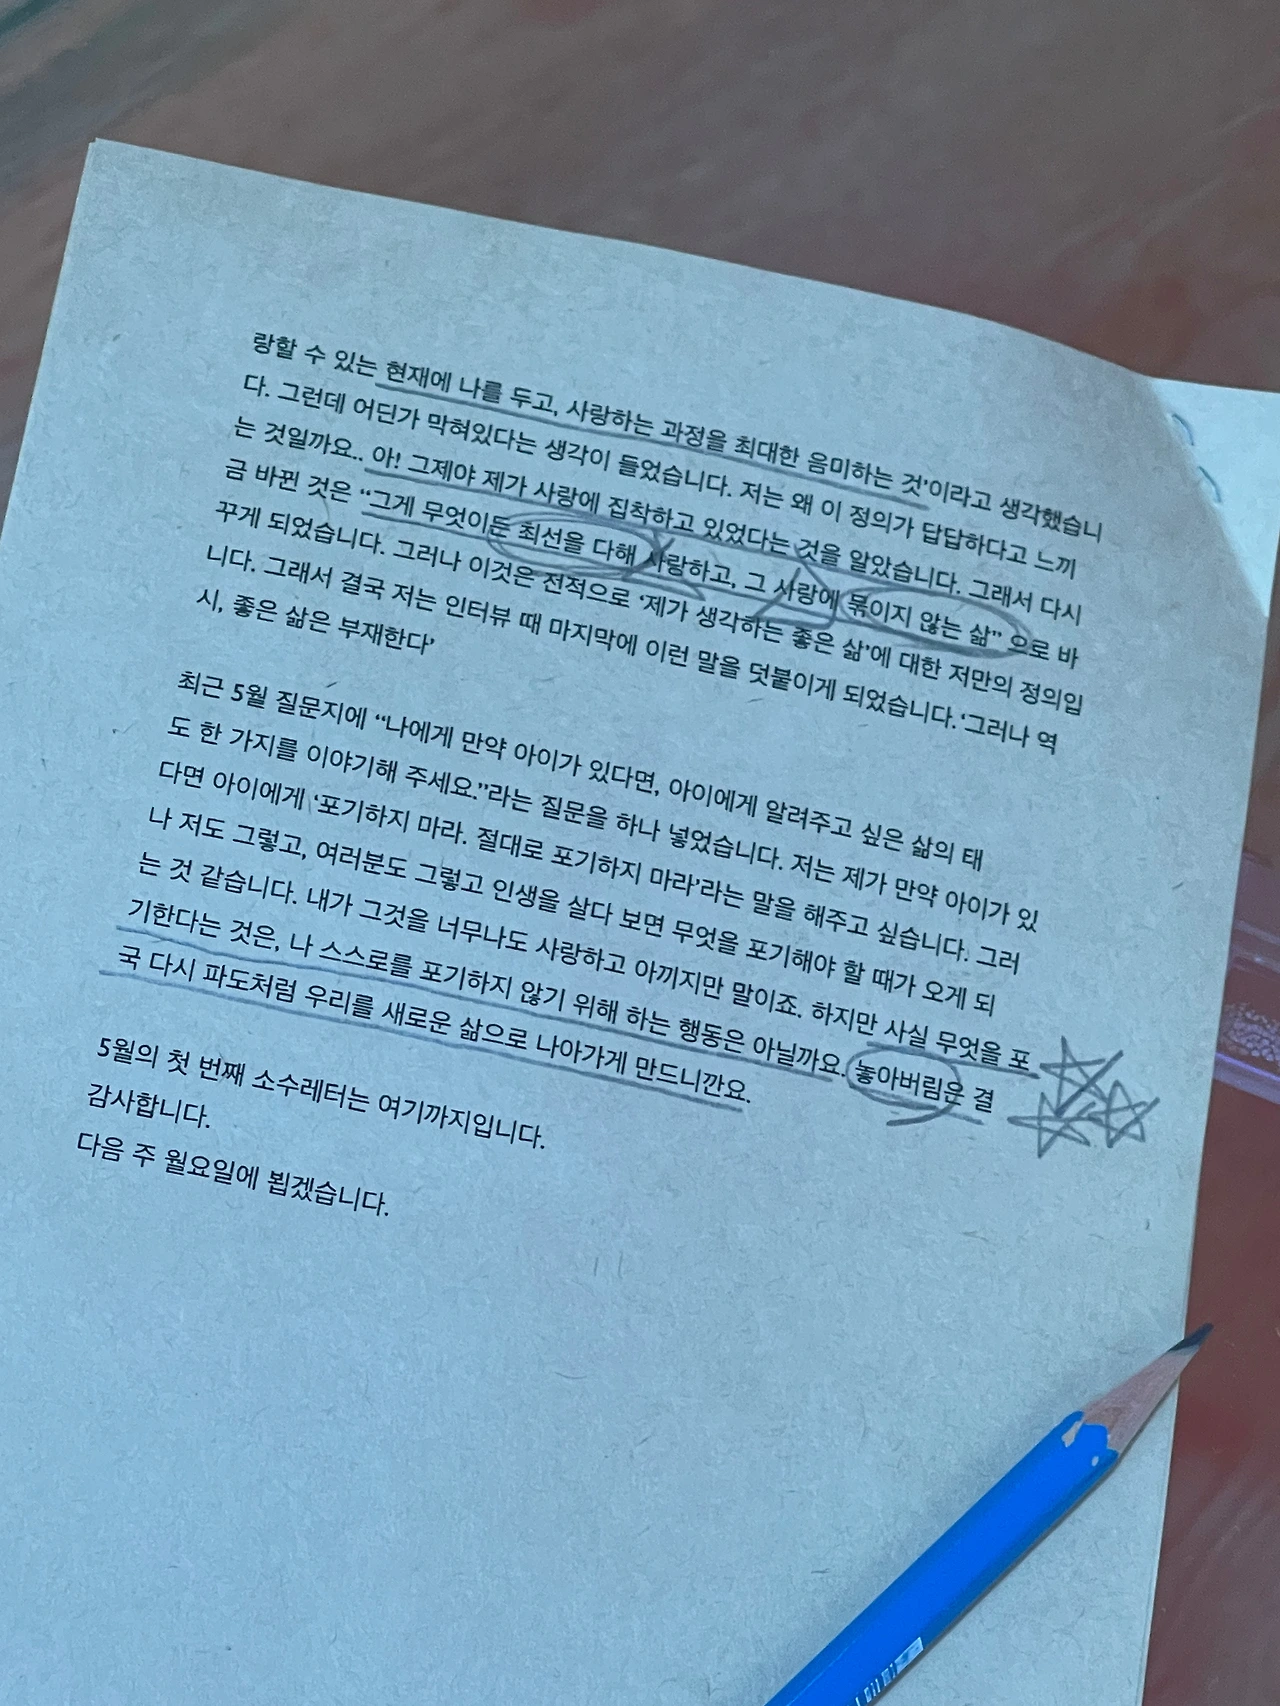 랑할 수 있는 현재에 나를 두고, 사랑하는 과정을 최대한 음미하는 것'이라고 생각했습니
다. 그런데 어딘가 막혀있다는 생각이 들었습니다. 저는 왜 이 정의가 답답하다고 느끼
는 것일까요.. 아! 그제야 제가 사랑에 집착하고 있었다는 것을 알았습니다. 그래서 다시
금 바뀐 것은 “그게 무엇이든 최선을 다해 사랑하고, 그 사랑에 묶이지 않는 삶” 으로 바
꾸게 되었습니다. 그러나 이것은 전적으로 '제가 생각하는 좋은 삶'에 대한 저만의 정의입
니다. 그래서 결국 저는 인터뷰 때 마지막에 이런 말을 덧붙이게 되었습니다. '그러나 역
시, 좋은 삶은 부재한다'
최근 5월 질문지에 “나에게 만약 아이가 있다면, 아이에게 알려주고 싶은 삶의 태
도 한 가지를 이야기해 주세요.”라는 질문을 하나 넣었습니다. 저는 제가 만약 아이가 있
다면 아이에게 '포기하지 마라. 절대로 포기하지 마라'라는 말을 해주고 싶습니다. 그러
나 저도 그렇고, 여러분도 그렇고 인생을 살다 보면 무엇을 포기해야 할 때가 오게 되
는 것 같습니다. 내가 그것을 너무나도 사랑하고 아끼지만 말이죠. 하지만 사실 무엇을 포
기한다는 것은, 나 스스로를 포기하지 않기 위해 하는 행동은 아닐까요. 놓아버림은 결
국 다시 파도처럼 우리를 새로운 삶으로 나아가게 만드니깐요.
5월의 첫 번째 소수레터는 여기까지입니다.
감사합니다.
다음 주 월요일에 뵙겠습니다.